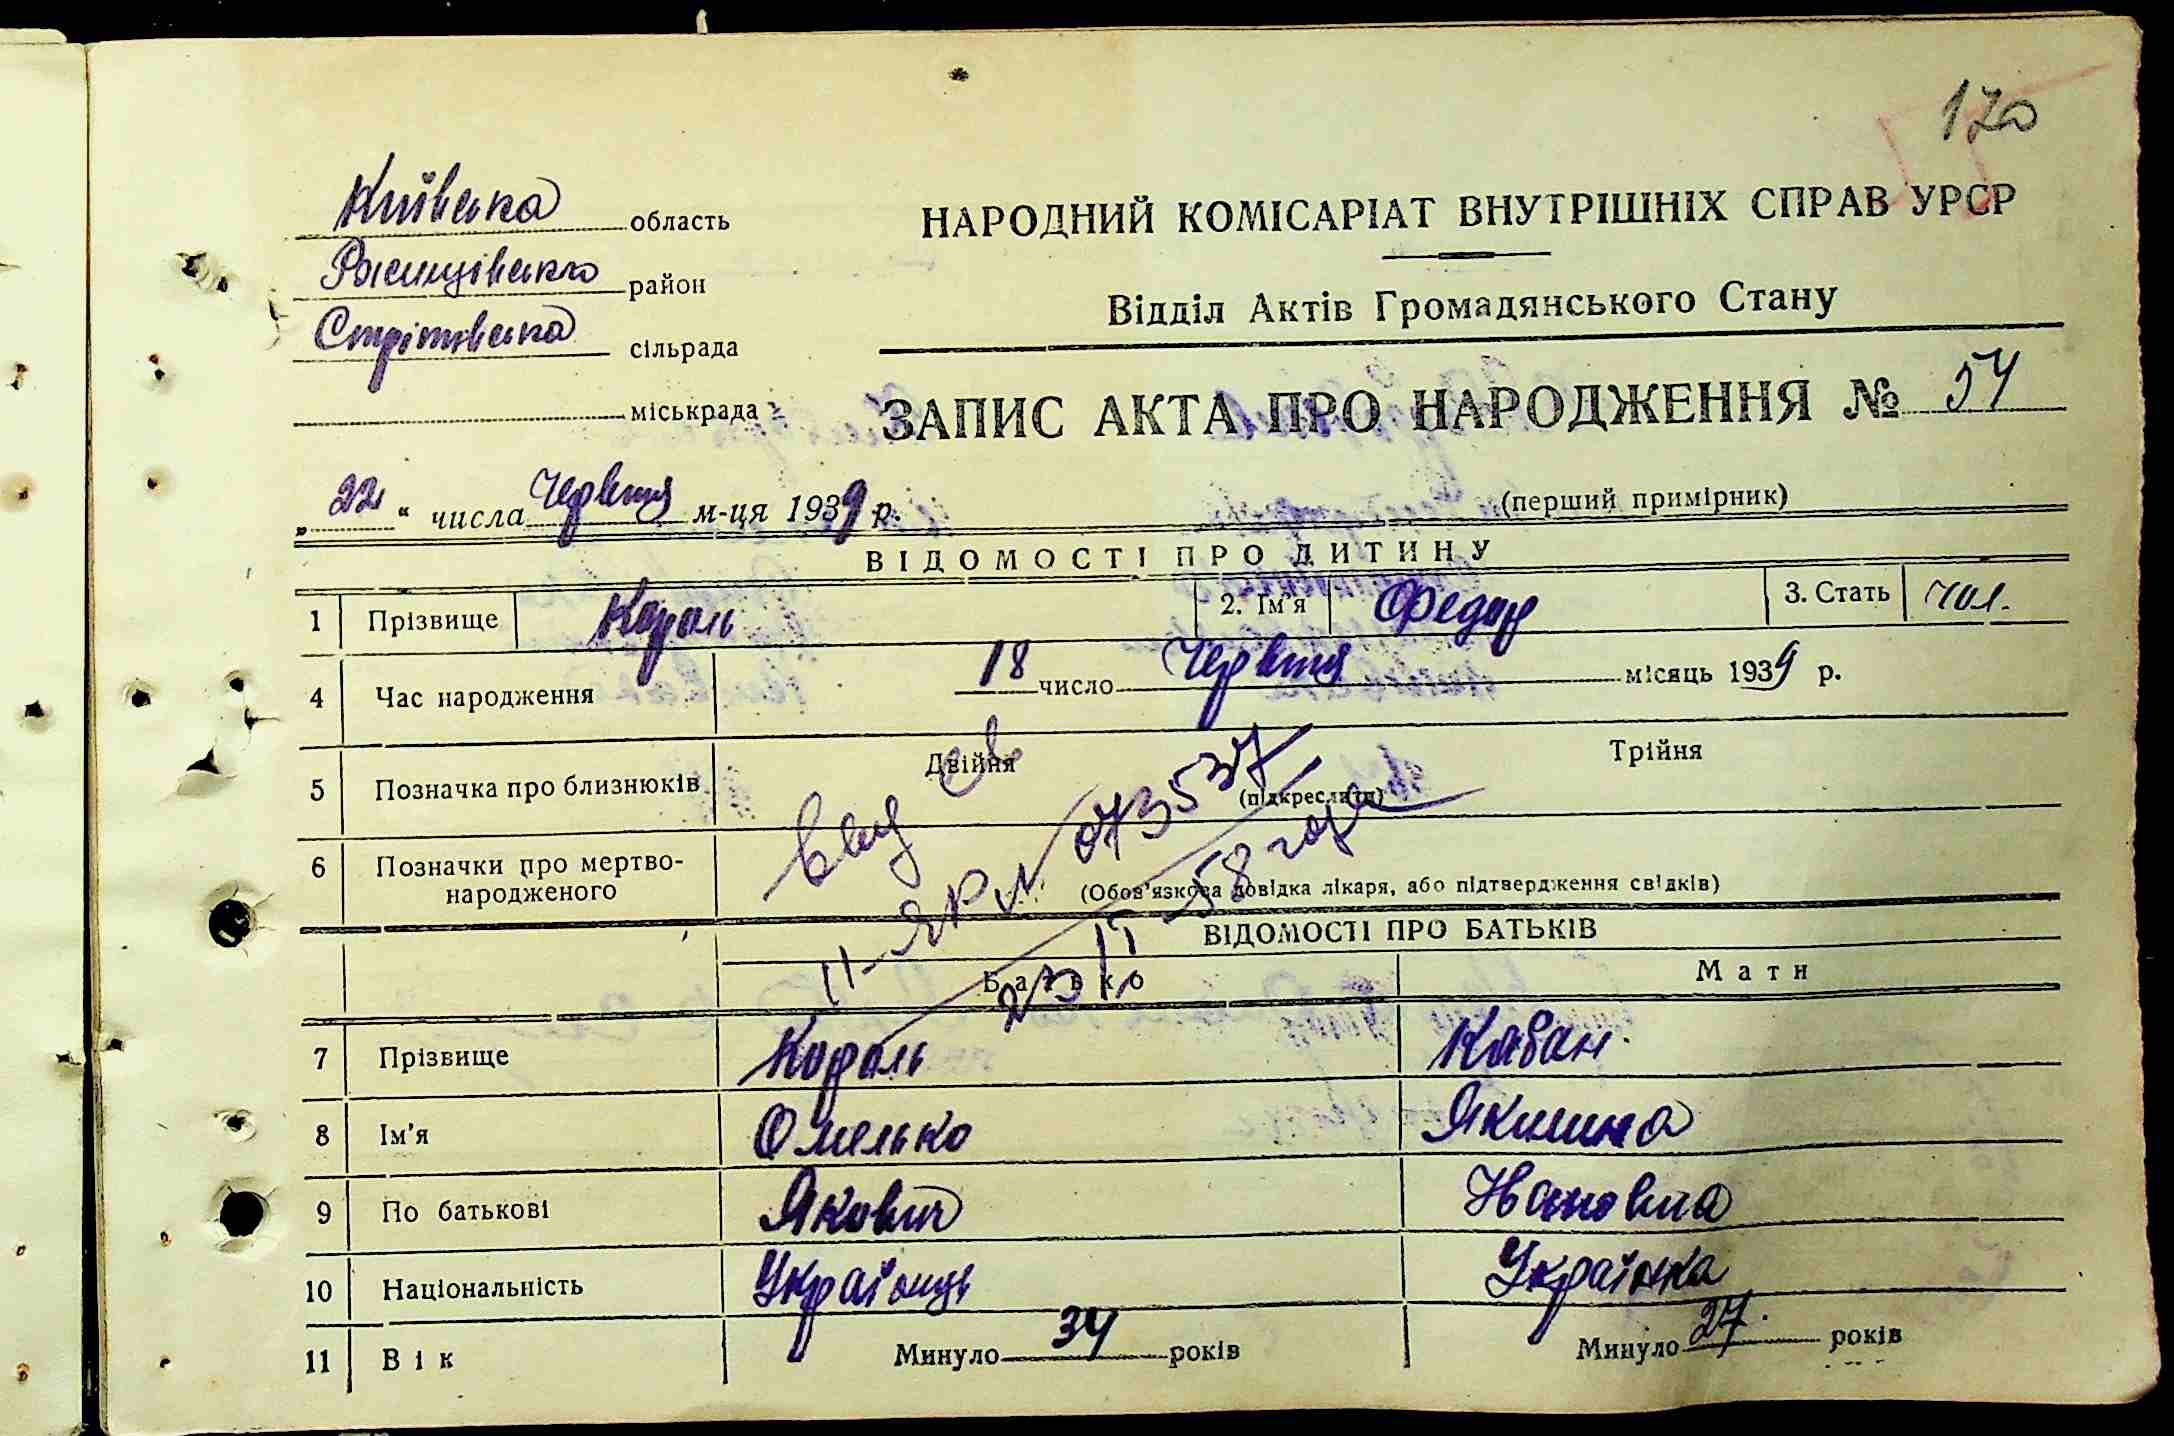 120
Київська область
район
сільрада
міськрада
НАРОДНИЙ КОМІСАРІАТ ВНУТРІШНІХ СПРАВ УРСР
Відділ Актів Громадянського Стану
ЗАПИС АКТА ПРО НАРОДЖЕННЯ № 54
„22“ числа Червня м-ця 1939 р.
(перший примірник)
ВІДОМОСТІ ПРО ДИТИНУ
1 Прізвище Король 2. Ім'я Федор 3. Стать чол.
4 Час народження 18 число Червня місяць 1939 р.
5 Позначка про близнюків Двійня Трійня
(підкреслити)
6 Позначки про мертво-
народженого
(Обов'язкова довідка лікаря, або підтвердження свідків)
II-ЯР № 073537
23/IV-58 года
ВІДОМОСТІ ПРО БАТЬКІВ
Батько Мати
7 Прізвище Король Кабан.
8 Ім'я Омелько Якилина
9 По батькові Якович Івановна
10 Національність Українець Українка
11 Вік Минуло 34 років Минуло 27. років